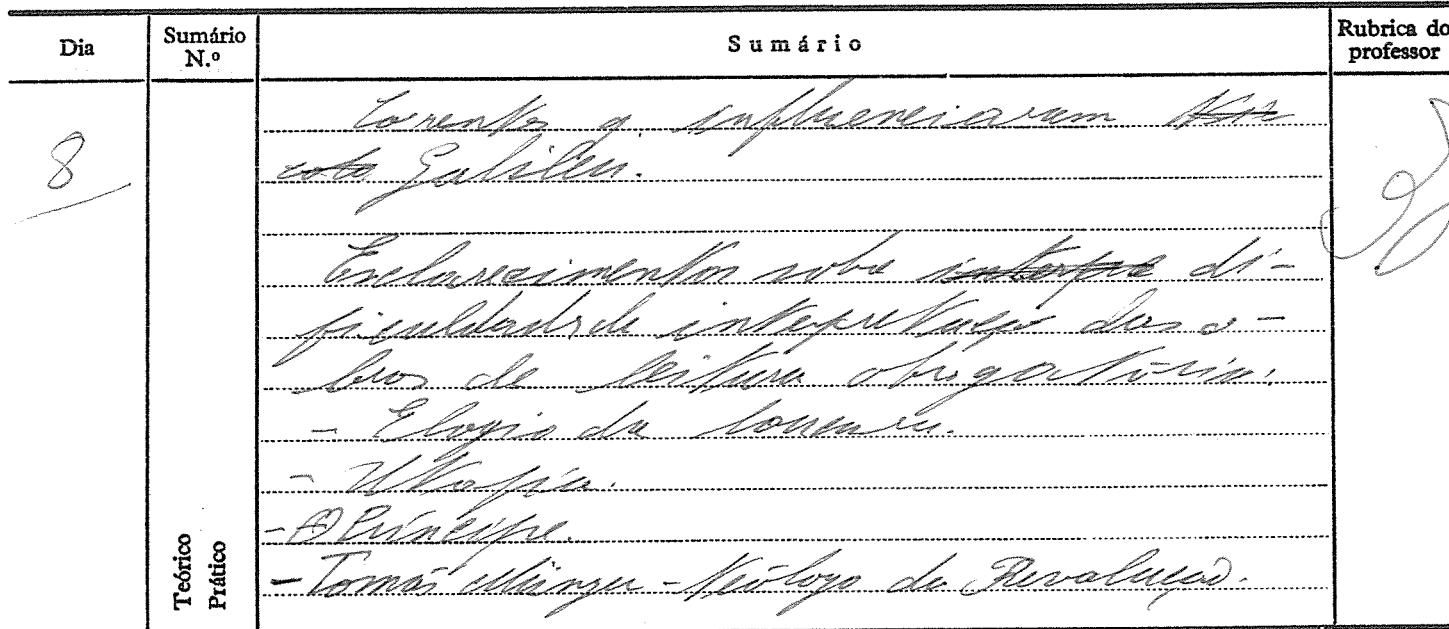 Dia
Sumário N.º
Sumário
Rubrica do professor
8
Teórico
Prático
Correntes q. influenciaram
Galileu.
Esclarecimentos sobre di-
ficuldads de intepretação das o-
bras de leitura obrigatória:
- Elogio da loucura.
- Utopia.
- O Príncipe.
- Tomás Münzer - Teólogo da Revolução.